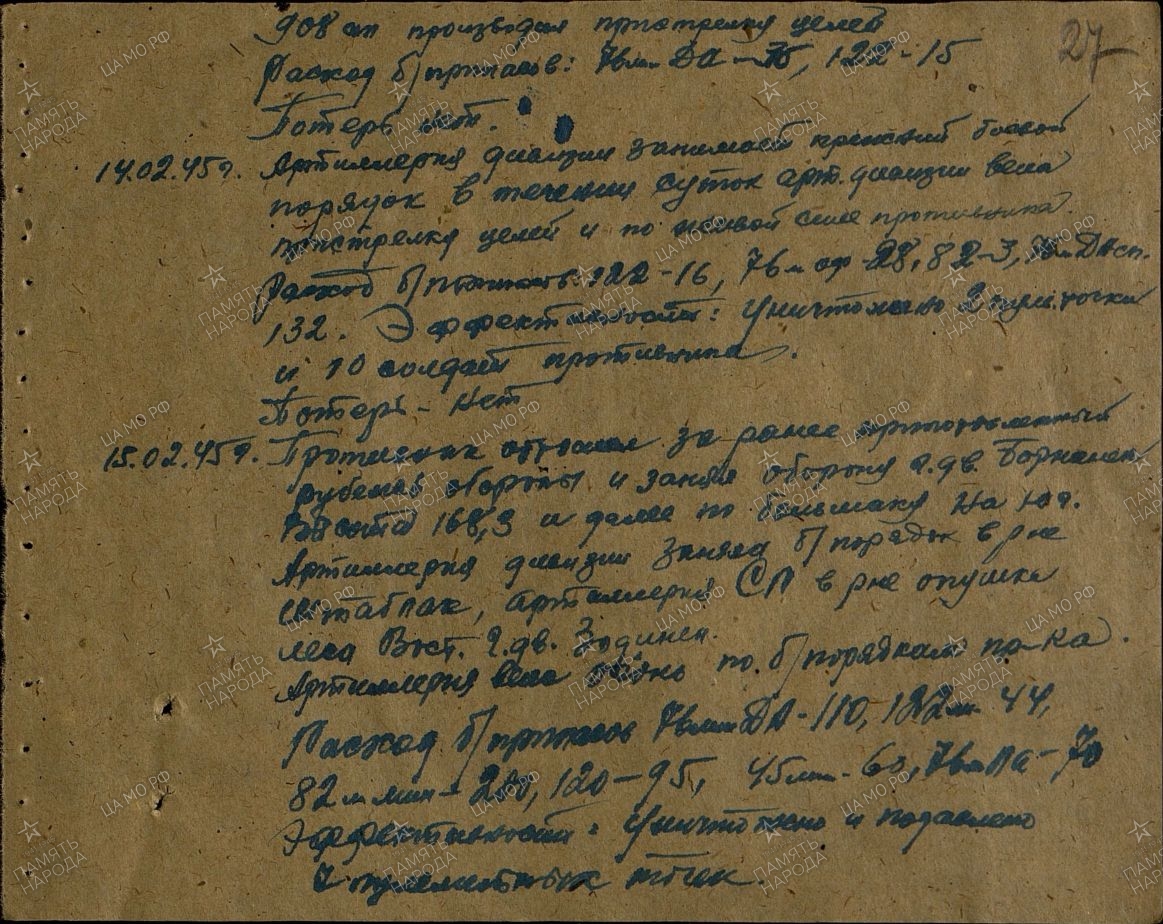 27
908 ап производил пристрелку целей
Расход б/припасов: 76мм ДА - 75, 122-15
Потерь нет.
14.02.45г. Артиллерия дивизии занимает прежний боевой
порядок в течении суток арт. дивизии вела
пристрелку целей и по живой силе противника.
Расход б/припасов: 122-16, 76м 28, 82-3,
132. Эффективность: Уничтожено 2 пул. точки
и 10 солдат противника.
Потерь - нет
15.02.45г. Противник отошел за ранее
рубеж обороны и занял оборону г.дв.
Высота 168,3 и далее по большаку на юг.
Артиллерия дивизии заняла б/порядок в р-не
артиллерия СП в р-не опушка
леса Вост. г.дв.
Артиллерия вела огонь по б/порядкам пр-ка.
Расход б/припасов 76мм ДА-110, 122мм 44,
82м мин - 200, 120-95, 45мм - 60, 76м ПА-70
Эффективность: Уничтожено и подавлено
7 пулеметных точек.
ПАМЯТЬ НАРОДА
ЦА МО РФ